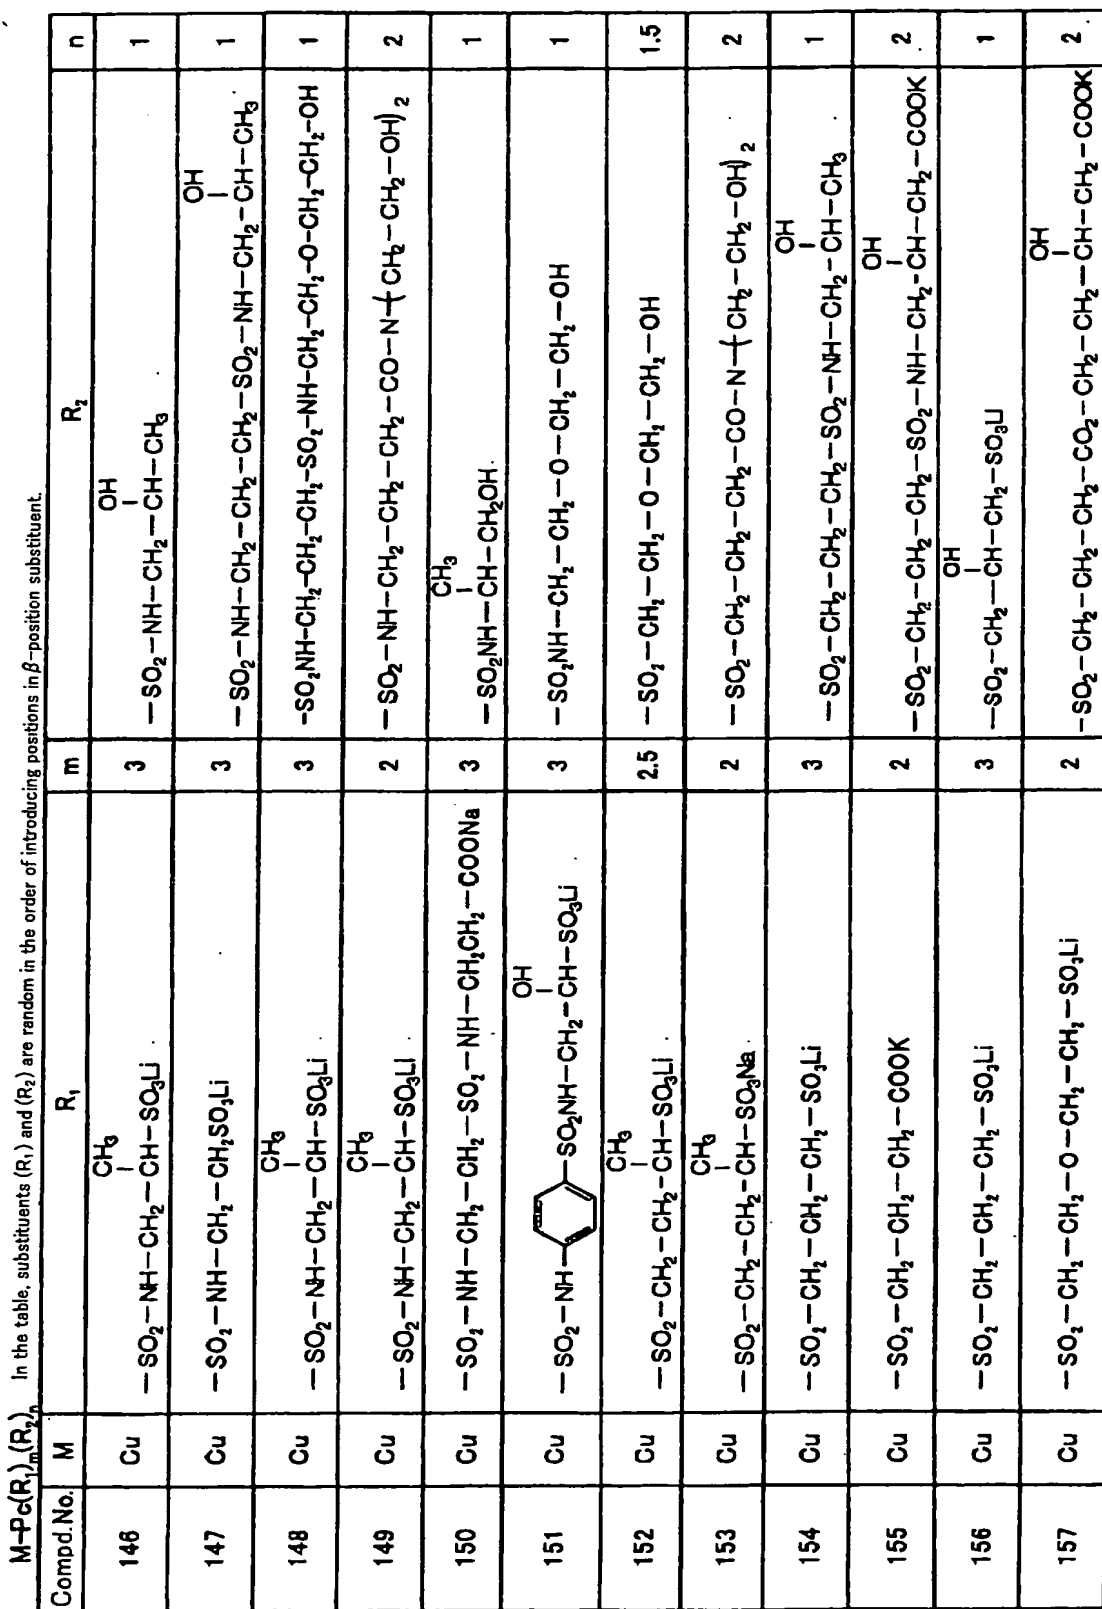 M-Pc(R₁)m(R₂)n In the table, substituents (R₁) and (R₂) are random in the order of introducing positions in β-position substituent.
Compd.No. M R₁ m R₂ n
CH₃ OH
146 Cu —SO₂—NH—CH₂—CH—SO₃Li 3 —SO₂—NH—CH₂—CH—CH₃ 1
OH
147 Cu —SO₂—NH—CH₂—CH₂SO₃Li 3 —SO₂—NH—CH₂—CH₂—CH₂—SO₂—NH—CH₂—CH—CH₃ 1
CH₃
148 Cu —SO₂—NH—CH₂—CH—SO₃Li 3 -SO₂NH-CH₂-CH₂-CH₂-SO₂-NH-CH₂-CH₂-O-CH₂-CH₂-OH 1
CH₃
149 Cu —SO₂—NH—CH₂—CH—SO₃Li 2 —SO₂—NH—CH₂—CH₂—CH₂—CO—N—(CH₂—CH₂—OH)₂ 2
CH₃
150 Cu —SO₂—NH—CH₂—CH₂—SO₂—NH—CH₂CH₂—COONa 3 —SO₂NH—CH—CH₂OH 1
OH
151 Cu —SO₂—NH— —SO₂NH—CH₂—CH—SO₃Li 3 —SO₂NH—CH₂—CH₂—O—CH₂—CH₂—OH 1
CH₃
152 Cu —SO₂—CH₂—CH₂—CH—SO₃Li 2.5 —SO₂—CH₂—CH₂—O—CH₂—CH₂—OH 1.5
CH₃
153 Cu —SO₂—CH₂—CH₂—CH—SO₃Na 2 —SO₂—CH₂—CH₂—CH₂—CO—N—(CH₂—CH₂—OH)₂ 2
OH
154 Cu —SO₂—CH₂—CH₂—CH₂—SO₃Li 3 —SO₂—CH₂—CH₂—CH₂—SO₂—NH—CH₂—CH—CH₃ 1
OH
155 Cu —SO₂—CH₂—CH₂—CH₂—COOK 2 —SO₂—CH₂—CH₂—CH₂—SO₂—NH—CH₂—CH—CH₂—COOK 2
OH
156 Cu —SO₂—CH₂—CH₂—CH₂—SO₃Li 3 —SO₂—CH₂—CH—CH₂—SO₃Li 1
OH
157 Cu —SO₂—CH₂—CH₂—O—CH₂—CH₂—SO₃Li 2 —SO₂—CH₂—CH₂—CH₂—CO₂—CH₂—CH₂—CH—CH₂—COOK 2